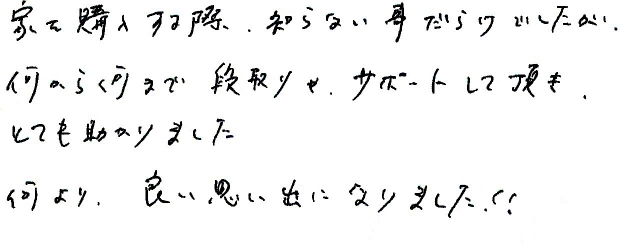 家を購入する際、知らない事だらけでしたが、
何から何まで段取りや、サポートして頂き、
とても助かりました
何より、良い思い出になりました!!